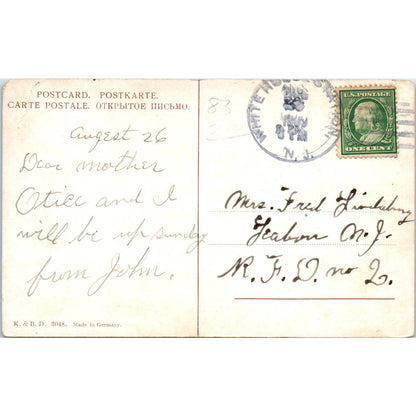 POSTCARD. POSTKARTE.
CARTE POSTALE. ОТКРЫТОЕ ПИСЬМО.
Augest 26
Dear mother
and I
will be up sunday
from John.
K. & B. D. 3048. Made in Germany.
83
WHITE HOUSE STATION,
8 PM
N. J.
U.S. POSTAGE
ONE CENT
Mrs. Fred
N. J.
R. F. D. no 2.